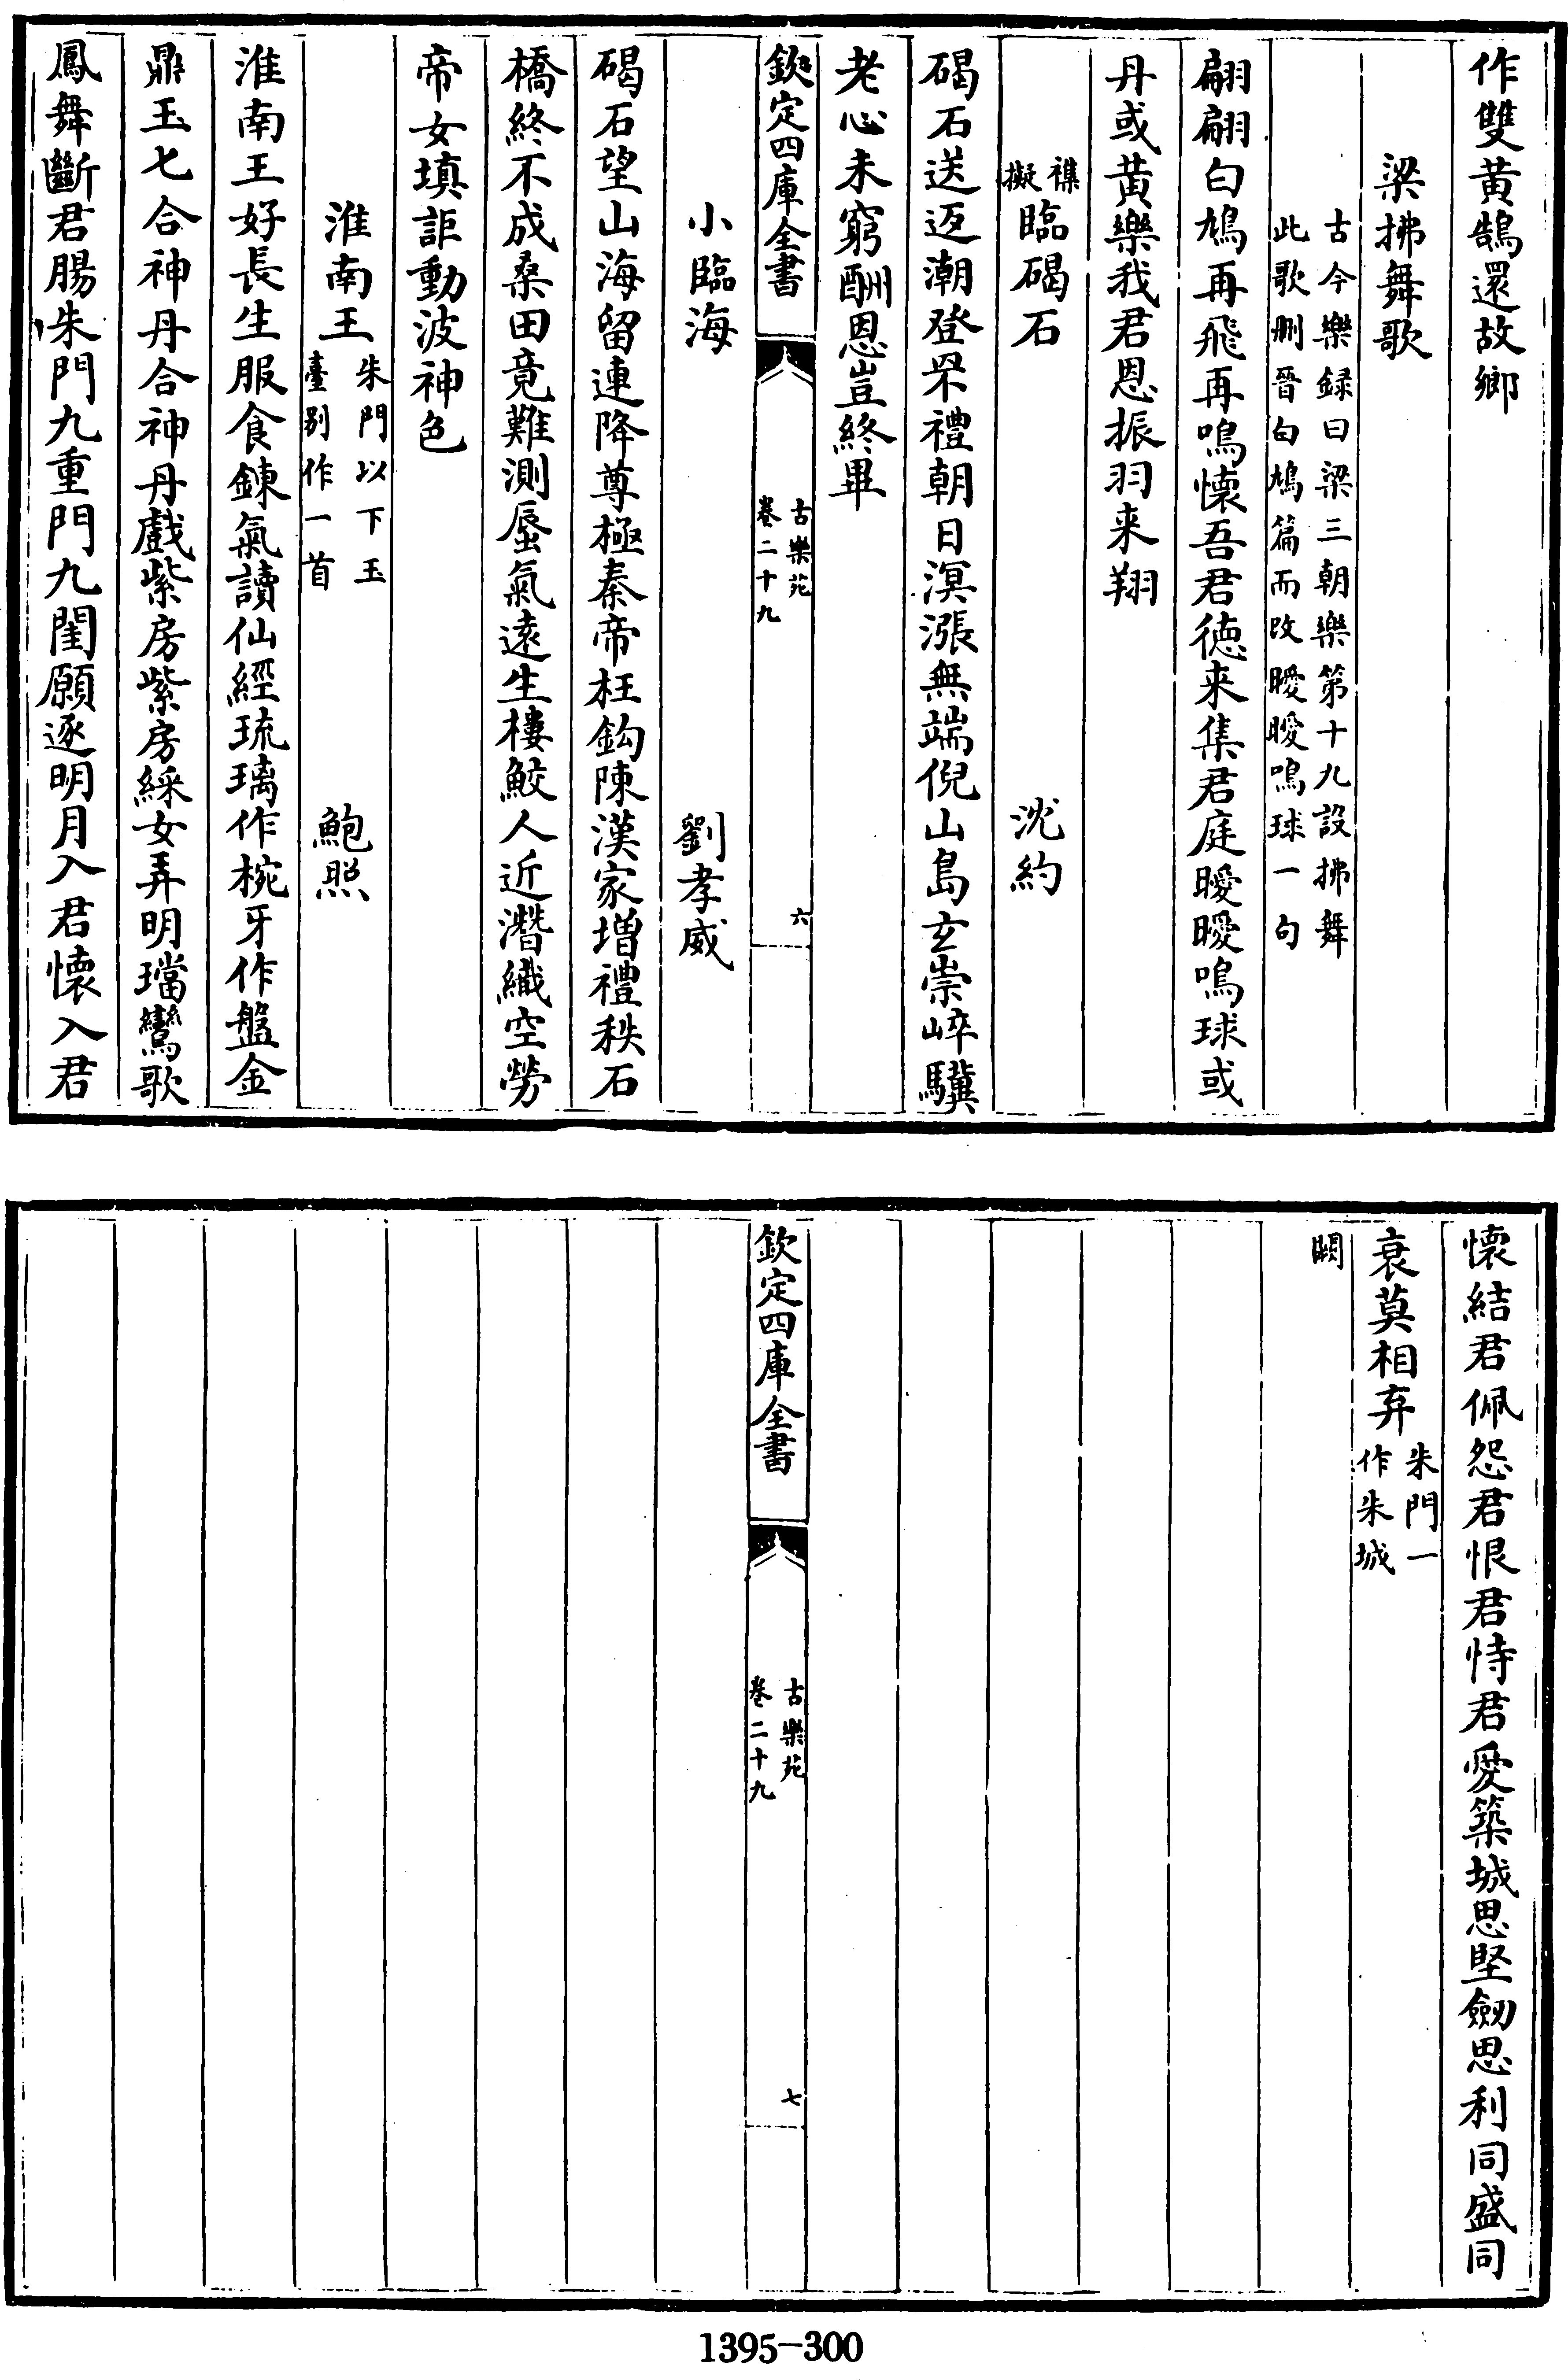 作雙黃鵠還故鄉
梁拂舞歌
古今樂録曰梁三朝樂第十九設拂舞
此歌刪晉白鳩篇而改曖曖鳴球一句
翩翩白鳩再飛再鳴懷吾君德来集君庭曖曖鳴球或
丹或黃樂我君恩振羽来翔
襍擬臨碣石 沈約
碣石送返潮登罘禮朝日溟漲無端倪山島玄崇崒驥
老心未窮酬恩豈終畢
欽定四庫全書 古樂苑 卷二十九 六
小臨海 劉孝威
碣石望山海留連降尊極秦帝枉鈎陳漢家増禮秩石
橋終不成桑田竟難測蜃氣遠生樓鮫人近潛織空勞
帝女填詎動波神色
淮南王 朱門以下玉臺别作一首 鮑照
淮南王好長生服食鍊氣讀仙經琉璃作椀牙作盤金
鼎玉七合神丹合神丹戲紫房紫房綵女弄明璫鸞歌
鳳舞斷君腸朱門九重門九閨願逐明月入君懷入君
懷結君佩怨君恨君恃君愛築城思堅劒思利同盛同
衰莫相弃 朱門一作朱城
闕
欽定四庫全書 古樂苑 卷二十九 七
1395-300